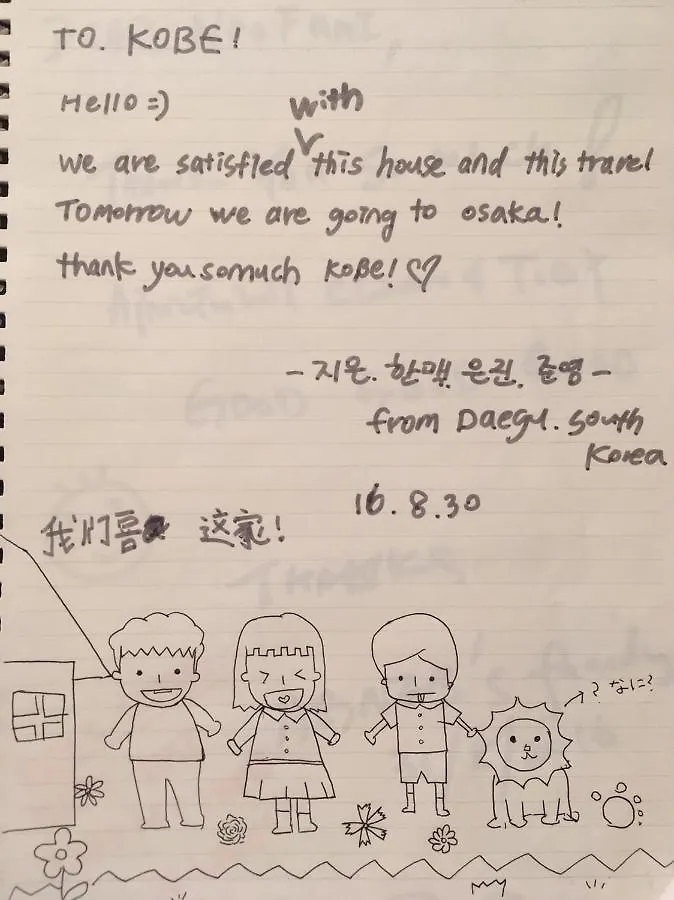 TO. KOBE!
Hello =)
with
we are satisfied this house and this travel
Tomorrow we are going to osaka!
thank you so much KOBE! ♡
- 지은. 한맥. 은진. 준영 -
from Daegu. South
Korea
16. 8. 30
我们喜 这家!
? なに?